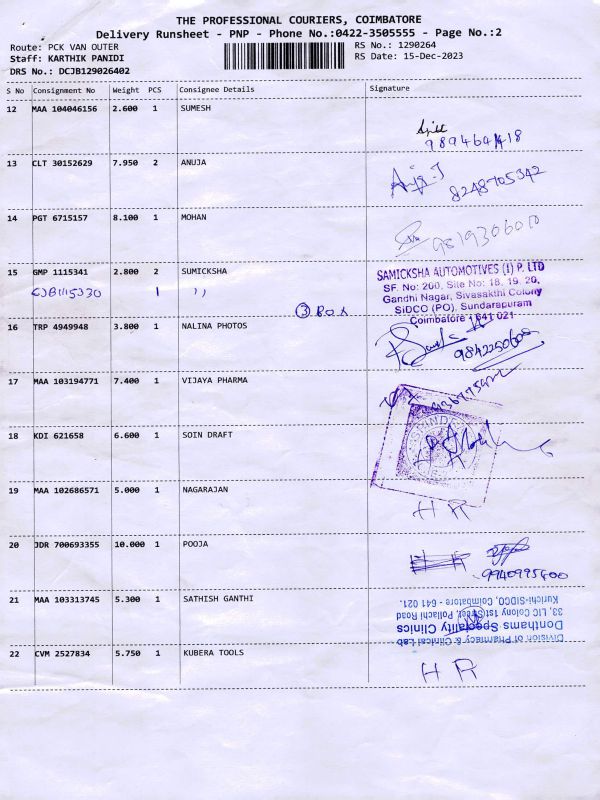 THE PROFESSIONAL COURIERS, COIMBATORE
Delivery Runsheet - PNP - Phone No.:0422-3505555 - Page No.:2
Route: PCK VAN OUTER
RS No.: 1290264
Staff: KARTHIK PANIDI
RS Date: 15-Dec-2023
DRS No.: DCJB129026402
S No Consignment No Weight PCS Consignee Details Signature
12 MAA 104046156 2.600 1 SUMESH
13 CLT 30152629 7.950 2 ANUJA
8248705342
14 PGT 6715157 8.100 1 MOHAN
9819306010
15 GMP 1115341 2.800 2 SUMICKSHA
CJB1115330 1 ,,
③ BOX
SAMICKSHA AUTOMOTIVES (I) P. LTD
SF. No: 200, Site No: 18, 19, 20,
Gandhi Nagar, Sivasakthi Colony
SIDCO (PO), Sundarapuram
Coimbatore - 641 021
16 TRP 4949948 3.800 1 NALINA PHOTOS
17 MAA 103194771 7.400 1 VIJAYA PHARMA
18 KDI 621658 6.600 1 SOIN DRAFT
19 MAA 102686571 5.000 1 NAGARAJAN
H R
20 JDR 700693355 10.000 1 POOJA
9940995400
21 MAA 103313745 5.300 1 SATHISH GANTHI
Division of Pharmacy & Clinical Lab
Donthams Speciality Clinics
33, LIC Colony 1st Street, Pollachi Road
Kurichi-SIDCO, Coimbatore - 641 021.
22 CVM 2527834 5.750 1 KUBERA TOOLS
H R